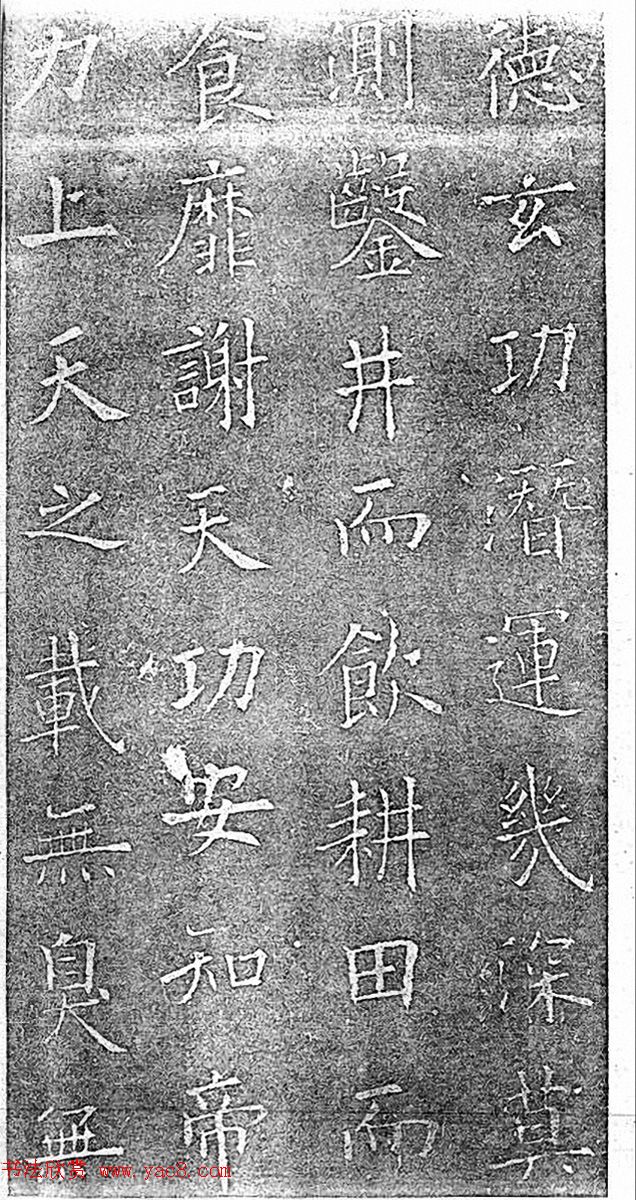 德玄功潛運幾深莫
測鑿井而飲耕田而
食靡謝天功安知帝
力上天之載無臭無
书法欣赏 www.yac8.com